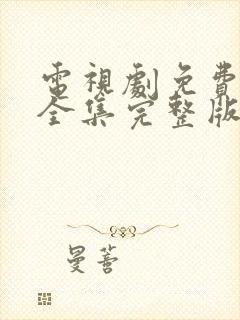 電視劇免費
全集完整版
曼蓍